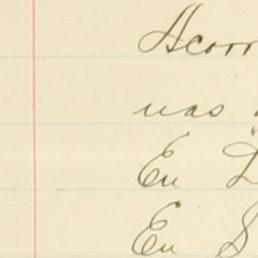 Acorr
was
En
En S